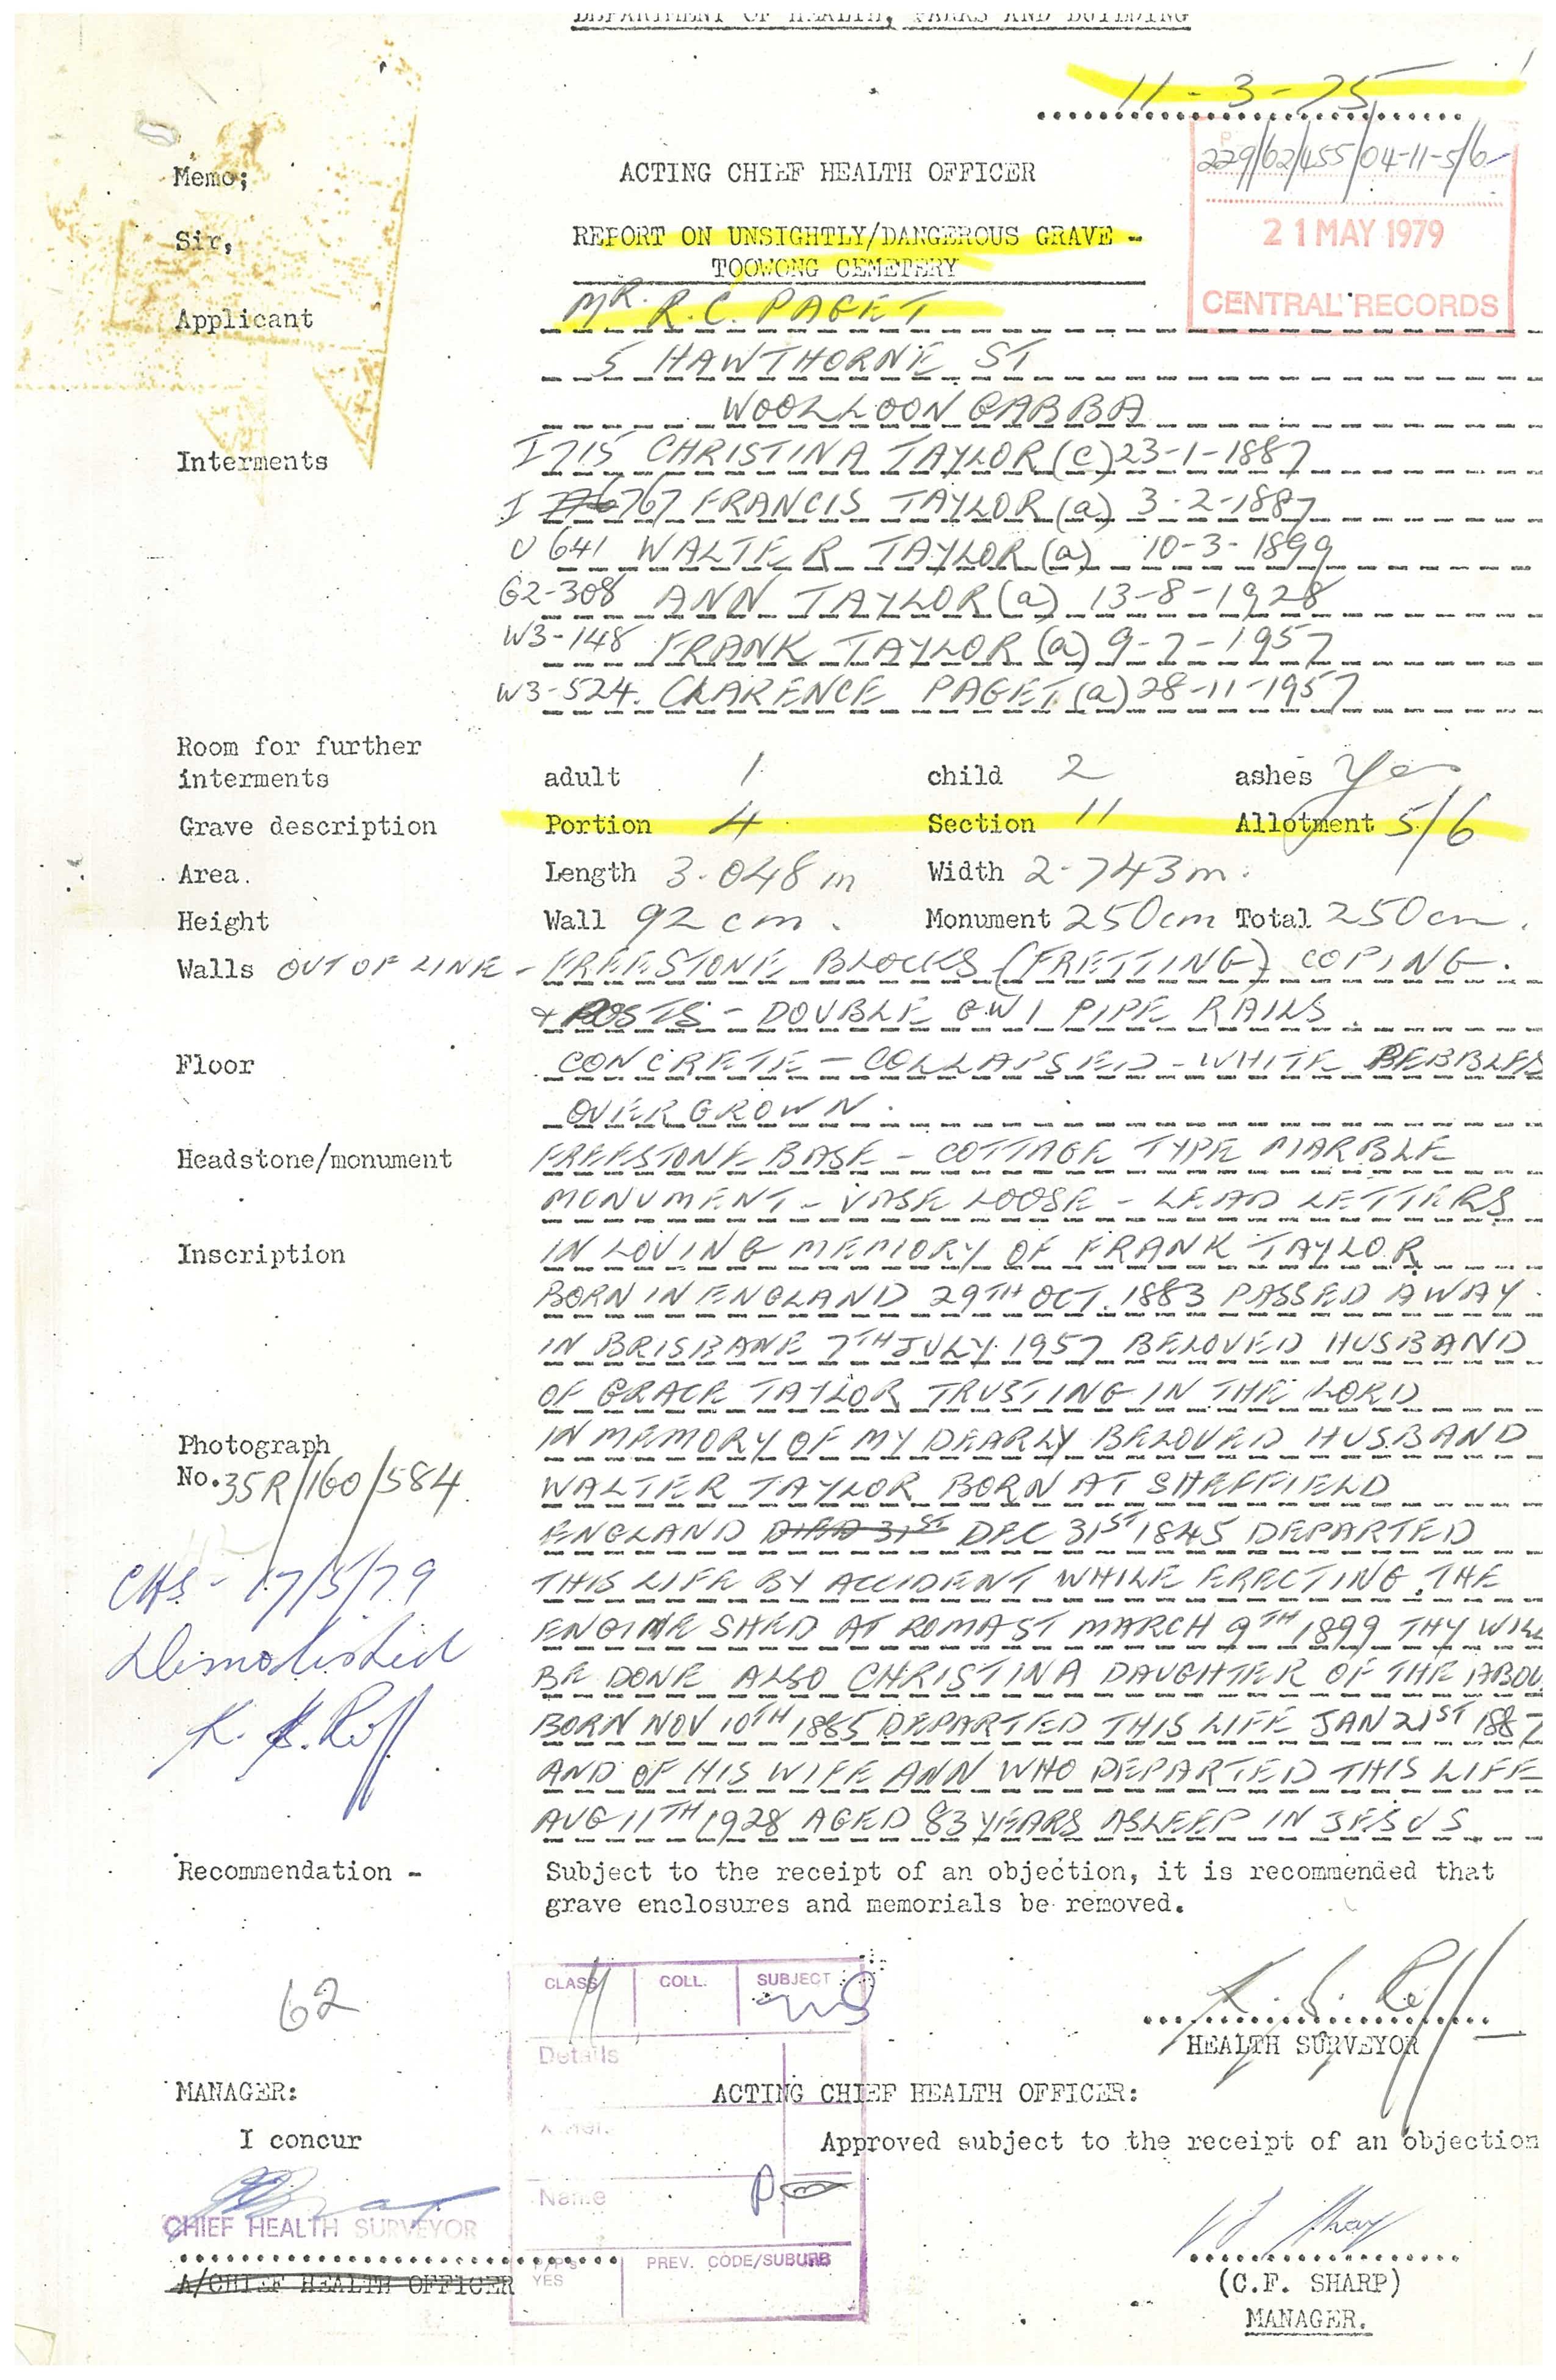 DEPARTMENT OF HEALTH, PARKS AND BUILDING
11-3-75
229/62/455/04-11-5/6
21 MAY 1979
CENTRAL RECORDS
Memo;
ACTING CHIEF HEALTH OFFICER
Sir,
REPORT ON UNSIGHTLY/DANGEROUS GRAVE -
TOOWONG CEMETERY
Applicant MR. R.C. PAGET
5 HAWTHORNE ST
WOOLLOONGABBA
Interments I715 CHRISTINA TAYLOR (C) 23-1-1887
I 767 FRANCIS TAYLOR (a) 3-2-1887
U641 WALTER TAYLOR (a) 10-3-1899
G2-308 ANN TAYLOR (a) 13-8-1928
W3-148 FRANK TAYLOR (a) 9-7-1957
W3-524. CLARENCE PAGET (a) 28-11-1957
Room for further
interments adult 1 child 2 ashes Yes
Grave description Portion 4 Section 11 Allotment 5/6
Area. Length 3.048m Width 2.743m.
Height Wall 92cm. Monument 250cm Total 250cm.
Walls OUT OF LINE - FREESTONE BLOCKS (FRETTING) COPING.
& POSTS - DOUBLE GWI PIPE RAILS.
Floor CONCRETE - COLLAPSED - WHITE PEBBLES
OVERGROWN.
Headstone/monument FREESTONE BASE - COTTAGE TYPE MARBLE
MONUMENT - VASE LOOSE - LEAD LETTERS
Inscription IN LOVING MEMORY OF FRANK TAYLOR
BORN IN ENGLAND 29TH OCT. 1883 PASSED AWAY
IN BRISBANE 7TH JULY 1957 BELOVED HUSBAND
OF GRACE TAYLOR TRUSTING IN THE LORD
Photograph IN MEMORY OF MY DEARLY BELOVED HUSBAND
No. 35R/160/584 WALTER TAYLOR BORN AT SHEFFIELD
ENGLAND DIED 31ST DEC 31ST 1845 DEPARTED
THIS LIFE BY ACCIDENT WHILE ERECTING THE
ENGINE SHED AT ROMA ST MARCH 9TH 1899 THY WILL
BE DONE ALSO CHRISTINA DAUGHTER OF THE ABOV
BORN NOV 10TH 1885 DEPARTED THIS LIFE JAN 21ST 1887
AND OF HIS WIFE ANN WHO DEPARTED THIS LIFE
AUG 11TH 1928 AGED 83 YEARS ASLEEP IN JESUS
CHS - 17/5/79
Dimolished
K. S. Riff
Recommendation - Subject to the receipt of an objection, it is recommended that
grave enclosures and memorials be removed.
62
CLASS COLL. SUBJECT
Details
Name
PREV. CODE/SUBURB
YES
HEALTH SURVEYOR
MANAGER:
ACTING CHIEF HEALTH OFFICER:
I concur
Approved subject to the receipt of an objection
CHIEF HEALTH SURVEYOR
A/CHIEF HEALTH OFFICER
(C.F. SHARP)
MANAGER.